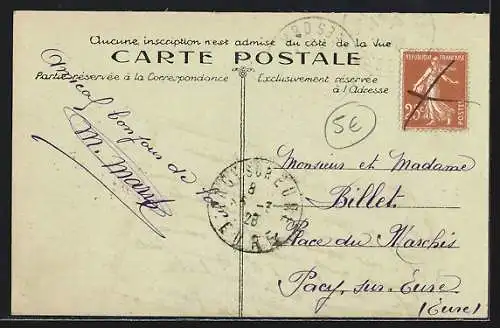 Aucune inscription n'est admise du côté de la vue
CARTE POSTALE
Partie réservée à la Correspondance
Exclusivement réservée
à l'Adresse
REPUBLIQUE FRANÇAISE
POSTES
5€
bonjour de
Monsieur et Madame
Billet
Place du
Pacy-sur-Eure
(Eure)
SUR EURE
8
28
EURE